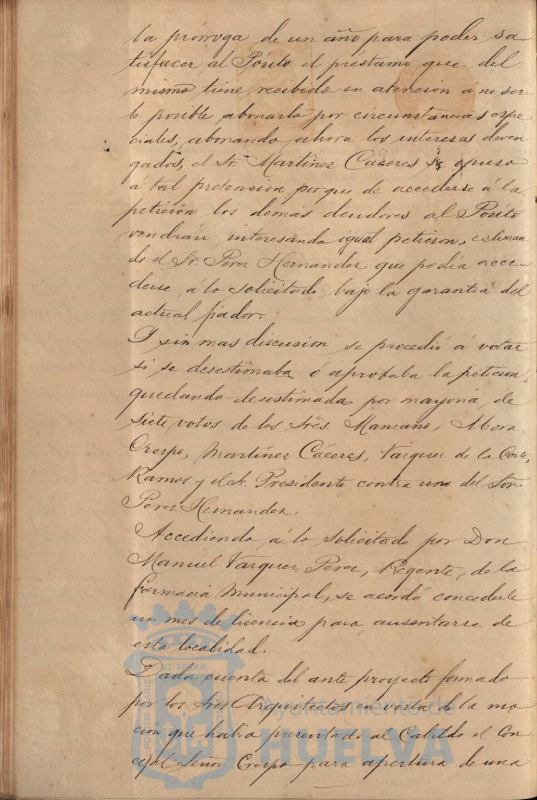 la prórroga de un año para poder sa
tisfacer al Pósito el préstamo que del
mismo tiene recibido en atencion á no ser
le posible abonarlo por circunstancias espe
ciales, abonando ahora los intereses deven
gados, el Sr. Martinez Cáceres se opuso
á tal pretension porque de accederse á la
petición los demás deudores al Pósito
vendrían interesando igual peticion, estiman
do el Sr. Perez Hernandez que podia acce
derse á lo solicitado bajo la garantía del
actual fiador.
Y sin mas discusion se procedió á votar
si se desestimaba o aprobaba la peticion,
quedando desestimada por mayoría de
siete votos de los Srés. Manzano, Mora
Crespo, Martinez Cáceres, Vazquez de la Corte,
Ramos y el Sr. Presidente contra uno del Sor
Perez Hernandez.
Accediendo á lo solicitado por Don
Manuel Vazquez Perez, Regente de la
farmacia Municipal, se acordó concederle
un mes de licencia para ausentarse de
esta localidad.
Dada cuenta del ante proyecto formado
por los Srés Arquitectos en vista de la mo
ción que habia presentado al Cabildo el Con
cejal Señor Crespo para apertura de una
Ayuntamiento de
HUELVA